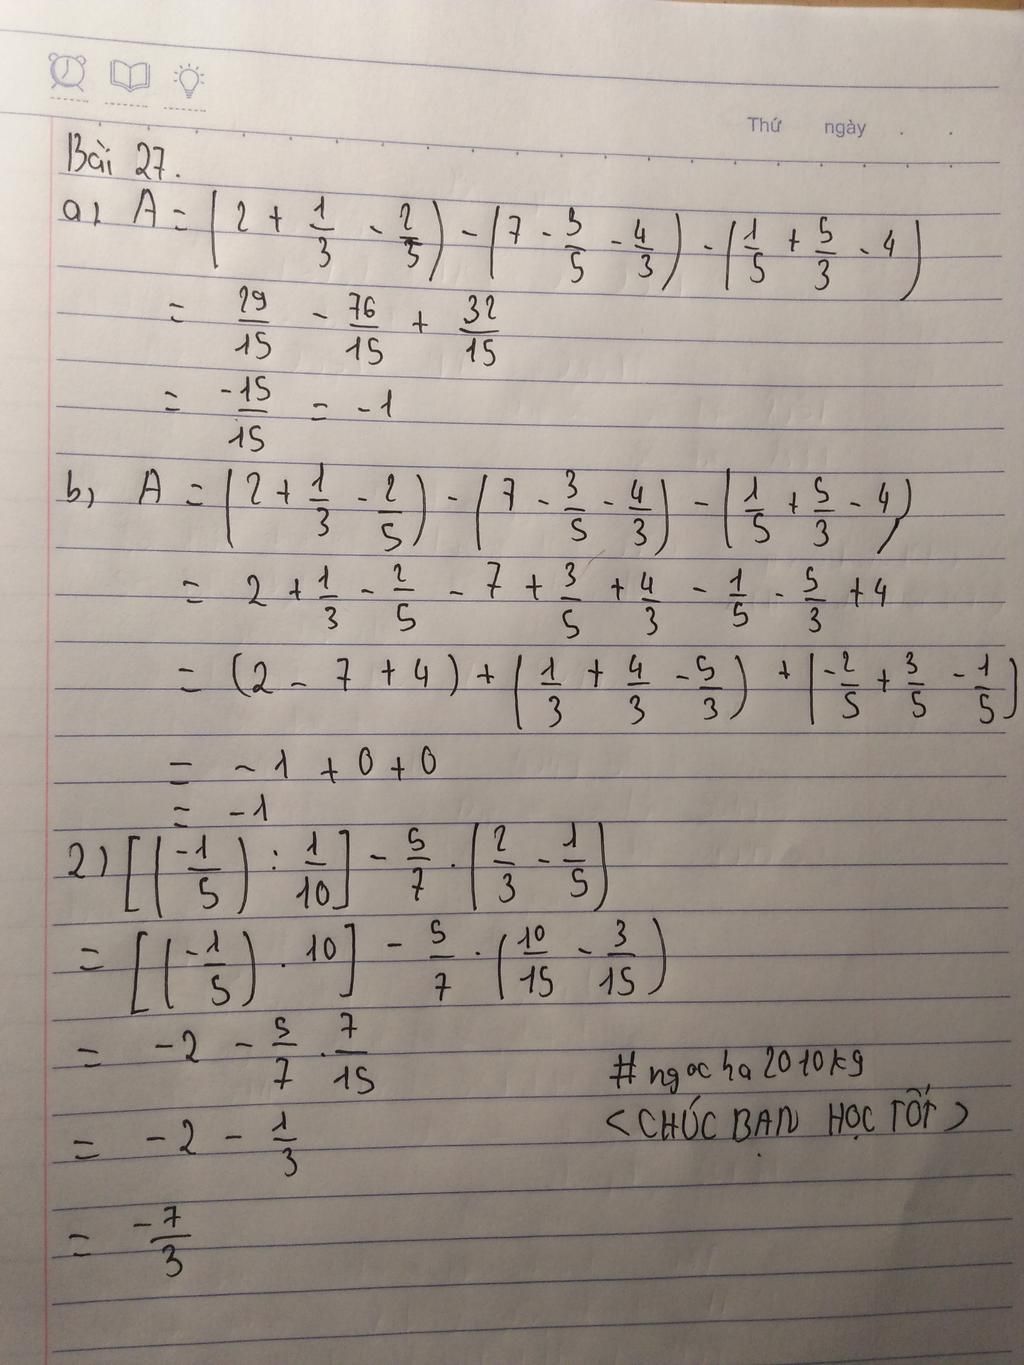 Thứ ngày . .
Bài 27.
a, A = (2 + 1/3 - 2/5) - (7 - 3/5 - 4/3) - (1/5 + 5/3 - 4)
= 29/15 - 76/15 + 32/15
= -15/15 = -1
b, A = (2 + 1/3 - 2/5) - (7 - 3/5 - 4/3) - (1/5 + 5/3 - 4)
= 2 + 1/3 - 2/5 - 7 + 3/5 + 4/3 - 1/5 - 5/3 + 4
= (2 - 7 + 4) + (1/3 + 4/3 - 5/3) + (-2/5 + 3/5 - 1/5)
= -1 + 0 + 0
= -1
2) [(-1/5) : 1/10] - 5/7 . (2/3 - 1/5)
= [(-1/5) . 10] - 5/7 . (10/15 - 3/15)
= -2 - 5/7 . 7/15
#ngocha2010kg
= -2 - 1/3
<CHÚC BẠN HỌC TỐT>
= -7/3